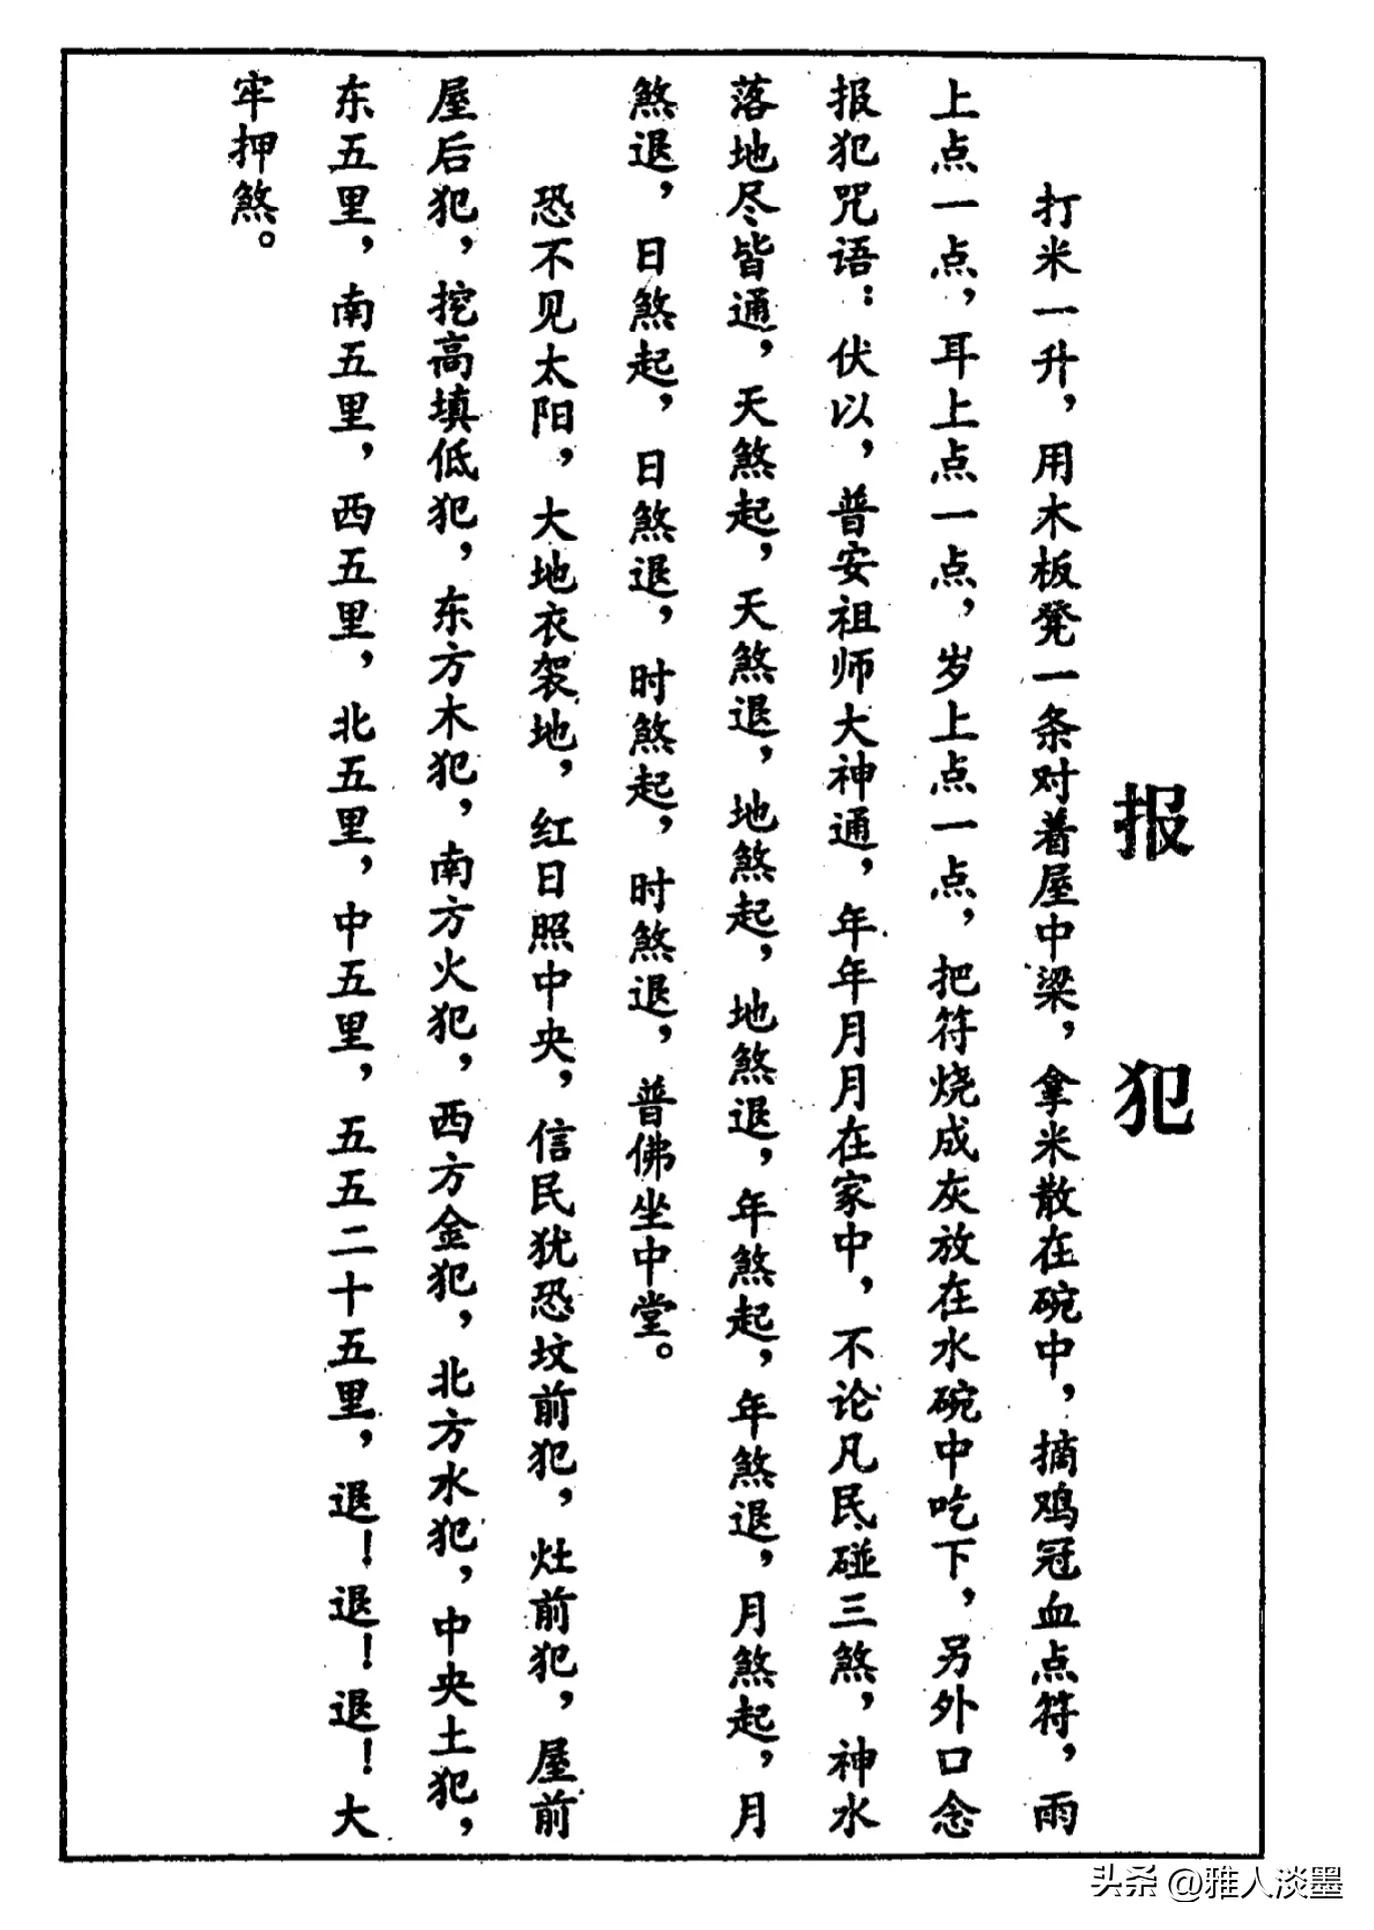 报犯
打米一升，用木板凳一条对着屋中梁，拿米散在碗中，摘鸡冠血点符，雨
上点一点，耳上点一点，岁上点一点，把符烧成灰放在水碗中吃下，另外口念
报犯咒语：伏以，普安祖师大神通，年年月月在家中，不论凡民碰三煞，神水
落地尽皆通，天煞起，天煞退，地煞起，地煞退，年煞起，年煞退，月煞起，月
煞退，日煞起，日煞退，时煞起，时煞退，普佛坐中堂。
恐不见太阳，大地衣袈地，红日照中央，信民犹恐坟前犯，灶前犯，屋前
屋后犯，挖高填低犯，东方木犯，南方火犯，西方金犯，北方水犯，中央土犯，
东五里，南五里，西五里，北五里，中五里，五五二十五里，退！退！退！大
牢押煞。
头条 @雅人淡墨